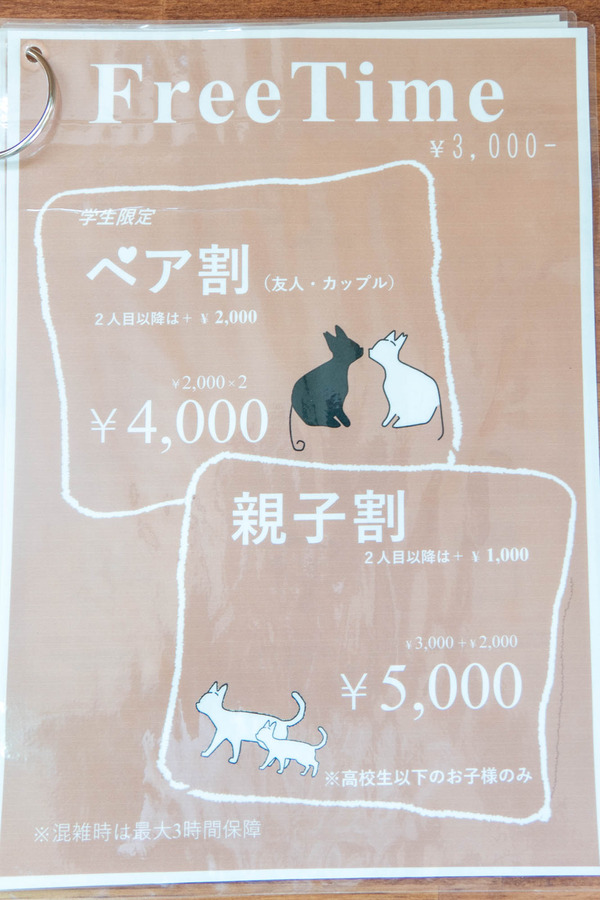 FreeTime
￥3,000-
学生限定
ペア割（友人・カップル）
２人目以降は＋￥2,000
￥2,000×2
￥4,000
親子割
２人目以降は＋￥1,000
￥3,000＋￥2,000
￥5,000
※高校生以下のお子様のみ
※混雑時は最大3時間保障